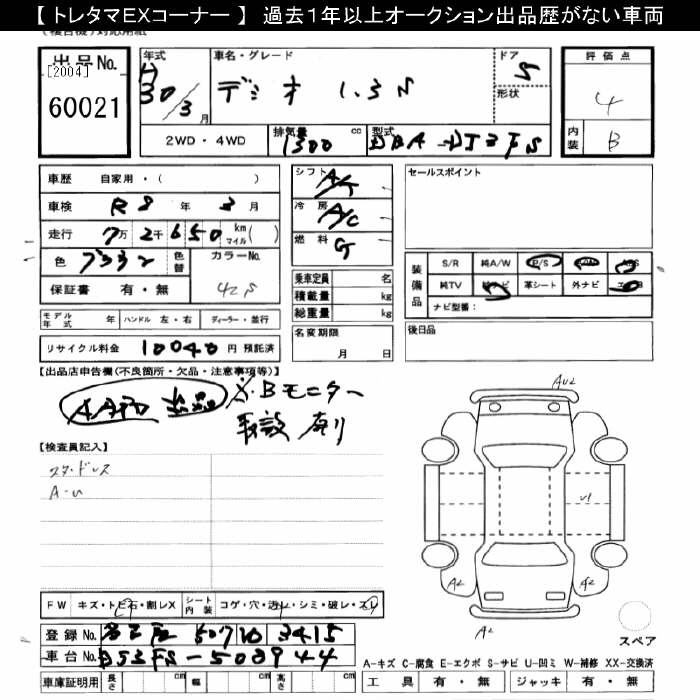 【 トレタマEXコーナー 】 過去1年以上オークション出品歴がない車両
出品No. [2004] 60021
年式 H 30/3 月
車名・グレード デミオ 1.3S
ドア 5
形状
評価点 4
内装 B
2WD・4WD
排気量 1300 cc
型式 DBA-DJ3FS
車歴 自家用・( )
車検 R8 年 3 月
走行 7万 2千 650 km(マイル)
色
色替
カラーNo. 42S
保証書 有・無
シフト A/T
冷房 A/C
燃料 G
乗車定員 名
積載量 kg
総重量 kg
名変期限 月 日
セールスポイント
装備品 S/R 純A/W P/S
純TV 純ナビ 革シート 外ナビ
ナビ型番:
後日品
モデル年式 年 ハンドル 左・右 ディーラー・並行
リサイクル料金 10040 円 預託済
【出品店申告欄(不良箇所・欠品・注意事項等)】
出品 ・Bモニター
【検査員記入】
スタッドレス
A-U
AU2
U1
A2
A2
A2
スペア
FW キズ・トビ石・割レX シート内装 コゲ・穴・汚レ・シミ・破レ・スレ
登録No. 名古屋 507 3415
車台No. DJ3FS-508944
車庫証明用 長さ cm 幅 cm 高さ cm
A-キズ C-腐食 E-エクボ S-サビ U-凹ミ W-補修 XX-交換済
工具 有・無 ジャッキ 有・無